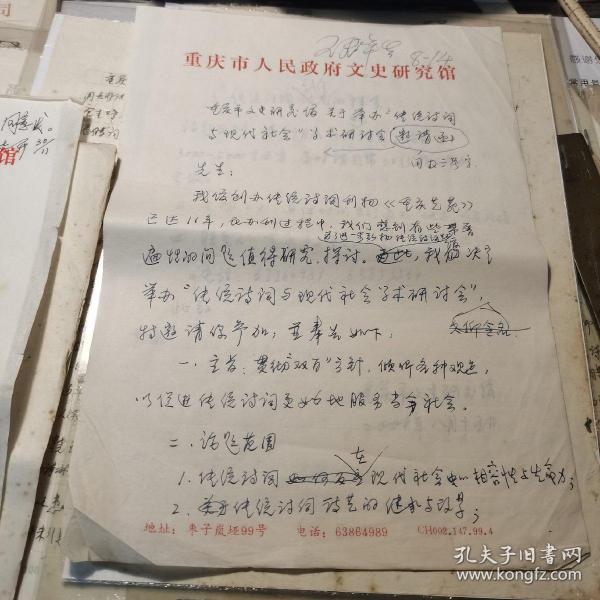 8-14
重庆市人民政府文史研究馆
重庆市文史研究馆关于举办"传统诗词
与现代社会"学术研讨会邀请函
先生:
我馆创办传统诗词刊物《重庆艺苑》
已达11年,在办刊过程中,我们感到有些带普
遍性的问题值得研究、探讨。我馆决定
举办"传统诗词与现代社会学术研讨会",
特邀请你参加,兹奉告如下:
一、主旨:贯彻"双百"方针,倾听各种观点,
以促进传统诗词更好地服务当今社会。
二、论题范围
1.传统诗词在现代社会中的相容性与生命力;
2.关于传统诗词的继承与改革;
地址:枣子岚垭99号 电话:63864989 CH002.147.99.4
馆
孔夫子旧书网
www.kongfz.com